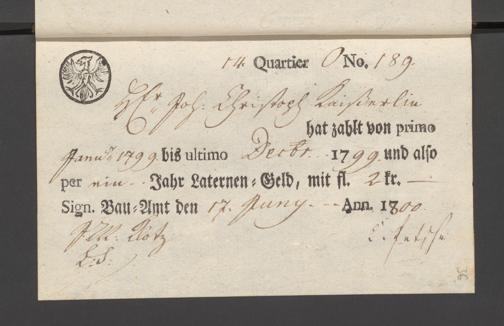 14 Quartier O No. 189.
Hr Joh: Christoph Kaißerlin
hat zahlt von primo
Januÿ 1799 bis ultimo Decbr. 1799 und also
per ein Jahr Laternen-Geld, mit fl. 2 kr. —
Sign. Bau-Amt den 17. Juny. Ann. 1800